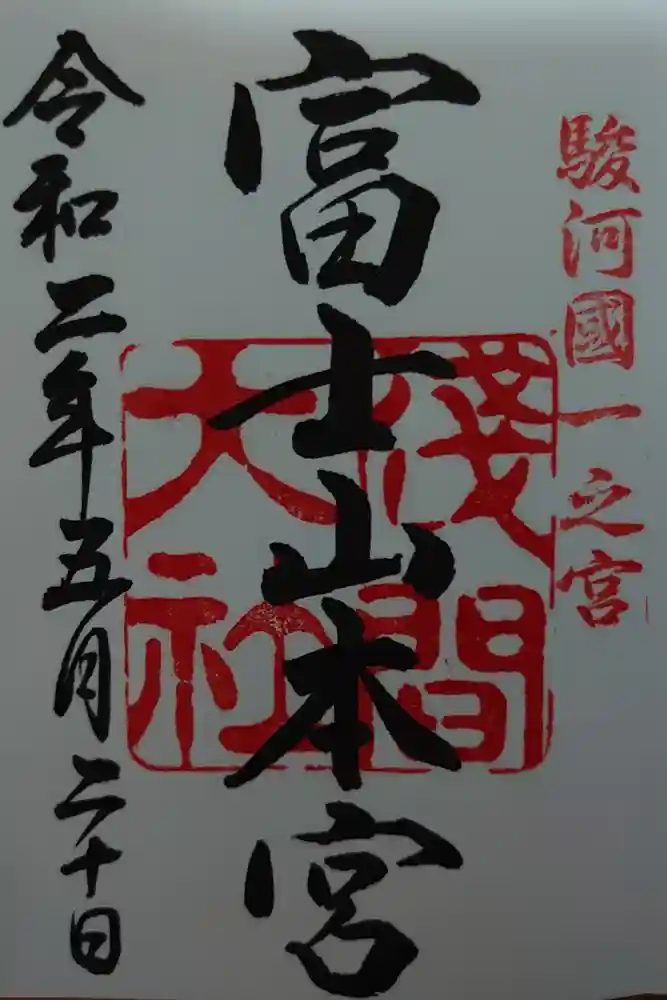 駿河國一之宮
富士山本宮
淺間大社
令和二年五月二十日